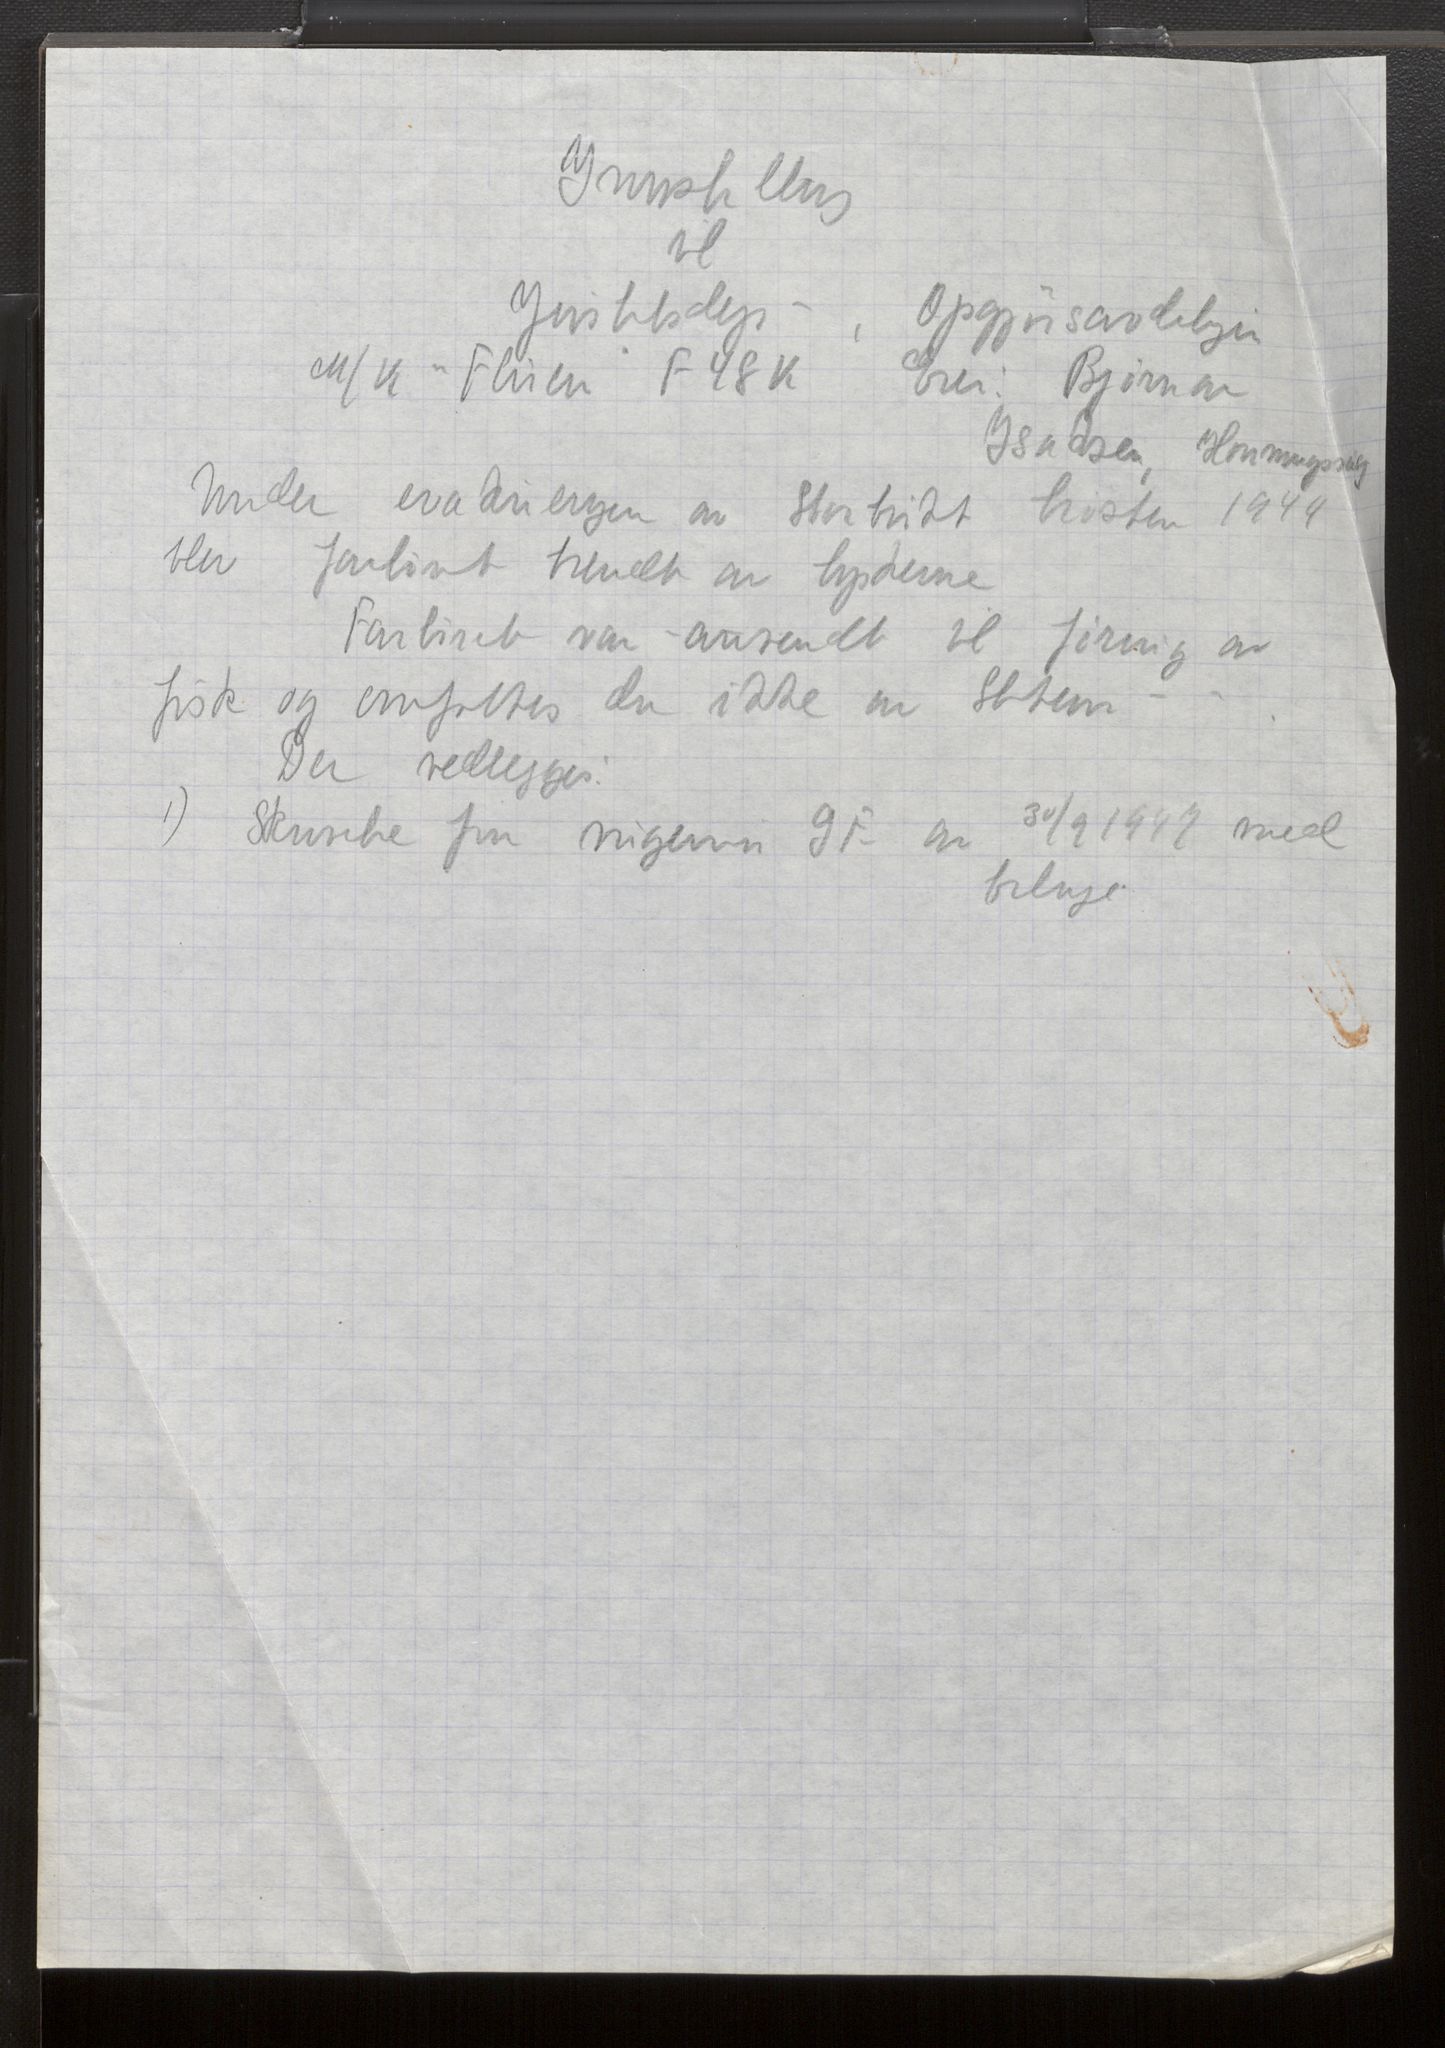 Innstilling
til
Justisdep –, Opgjörsavdelingen
M/K "Flinen" F 48 K Eier: Björnar
Isaksen, Honningsvåg
Under evakueringen av störtrikt hösten 1944
blev fartöiet brendt av tyskerne
Fartöiet var anvendt til föring av
fisk og omfattes da ikke av
Der vedlegges:
1) Skrivelse fra 30/9 1947 med
bilage